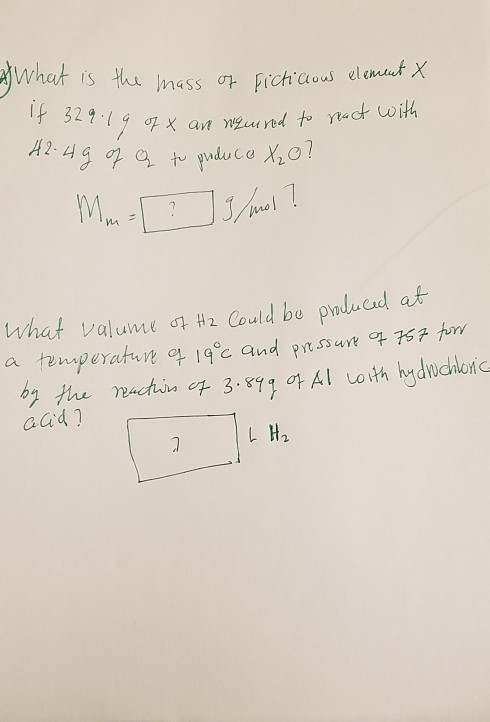 What is the mass of Ficticious element X
if 329.1g of X are required to react with
42.4g of O2 to produce X2O?
Mm = ? g/mol?
What valume of H2 Could be produced at
a temperature of 19°c and pressure of 757 torr
by the reaction of 3.89g of Al with hydrochloric
acid?
? L H2